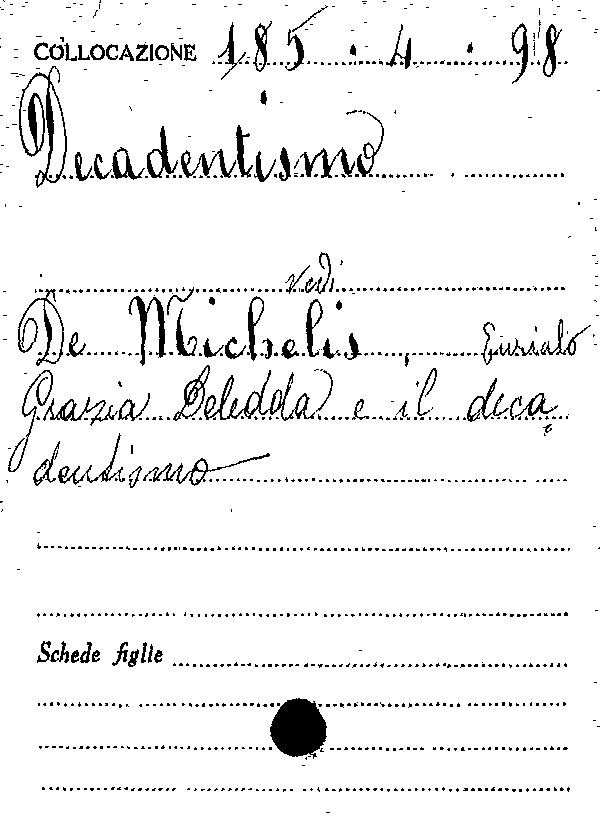 COLLOCAZIONE 185 . 4 . 98
Decadentismo
vedi
De Michelis, Eurialo
Grazia Deledda e il deca
dentismo
Schede figlie